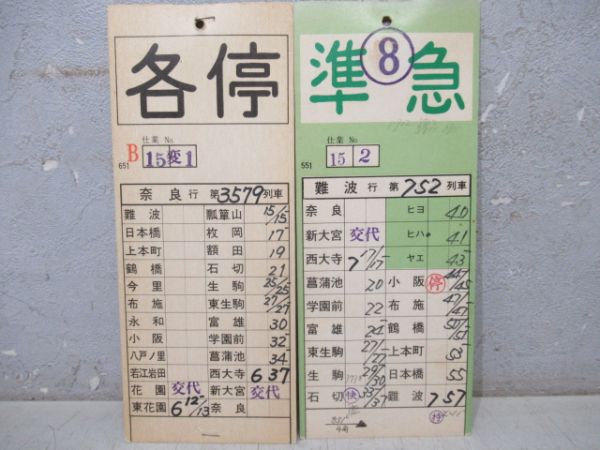 各停
仕業 No.
651 B 15変1
奈良 行 第 3579 列車
難波 瓢箪山 15/15
日本橋 枚岡 17
上本町 額田 19
鶴橋 石切 21
今里 生駒 25/25
布施 東生駒 27/27
永和 富雄 30
小阪 学園前 32
八戸ノ里 菖蒲池 34
若江岩田 西大寺 6 37
花園 交代 新大宮 交代
東花園 6 12/13 奈良
準急
8
仕業 No.
551 15 2
難波 行 第 752 列車
奈良 ヒヨ 40
新大宮 交代 ヒハ 41
西大寺 7 17/17 ヤエ 43
菖蒲池 20 小阪 停 44/45
学園前 22 布施 47/47
富雄 24 鶴橋 50/51
東生駒 27/27 上本町 53
生駒 29/30 日本橋 55
石切 快 33/37 難波 7 57